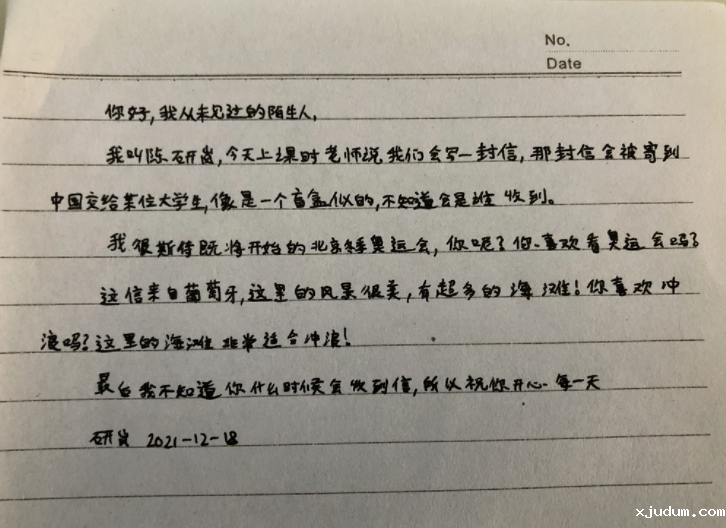 No.
Date
你好,我从未见过的陌生人,
我叫陈研岚,今天上课时老师说我们会写一封信,那封信会被寄到
中国交给某位大学生,像是一个盲盒似的,不知道会是谁收到。
我很斯待既将开始的北京冬季奥运会,你呢?你喜欢看奥运会吗?
这信来自葡萄牙,这里的风景很美,有超多的海滩!你喜欢冲
浪吗?这里的海滩非常适合冲浪!
最后我不知道你什么时候会收到信,所以祝你开心每一天
研岚 2021-12-18
xjudum.com